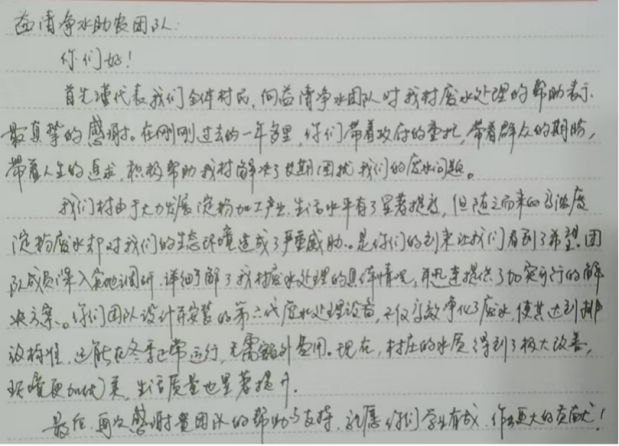 益清净水助农团队:
你们好!
首先谨代表我们全体村民,向益清净水团队对我村废水处理的帮助表示
最真挚的感谢。在刚刚过去的一年多里,你们带着政府的重托,带着群众的期盼,
带着人生的追求,积极帮助我村解决了长期困扰我们的废水问题。
我们村由于大力发展淀粉加工产业,生活水平有了显著提高,但随之而来的高浓度
淀粉废水却对我们的生态环境造成了严重威胁。是你们的到来让我们看到了希望,团
队成员深入实地调研,详细了解了我村废水处理的具体情况,并迅速提供了切实可行的解
决方案。你们团队设计并安装的第二代废水处理设备,不仅高效净化了废水,使其达到排
放标准,还能在冬季正常运行,无需额外费用。现在,村庄的水质得到了极大改善,
环境更加优美,生活质量也显著提升。
最后,再次感谢贵团队的帮助与支持,祝愿你们学业有成,作出更大的贡献!